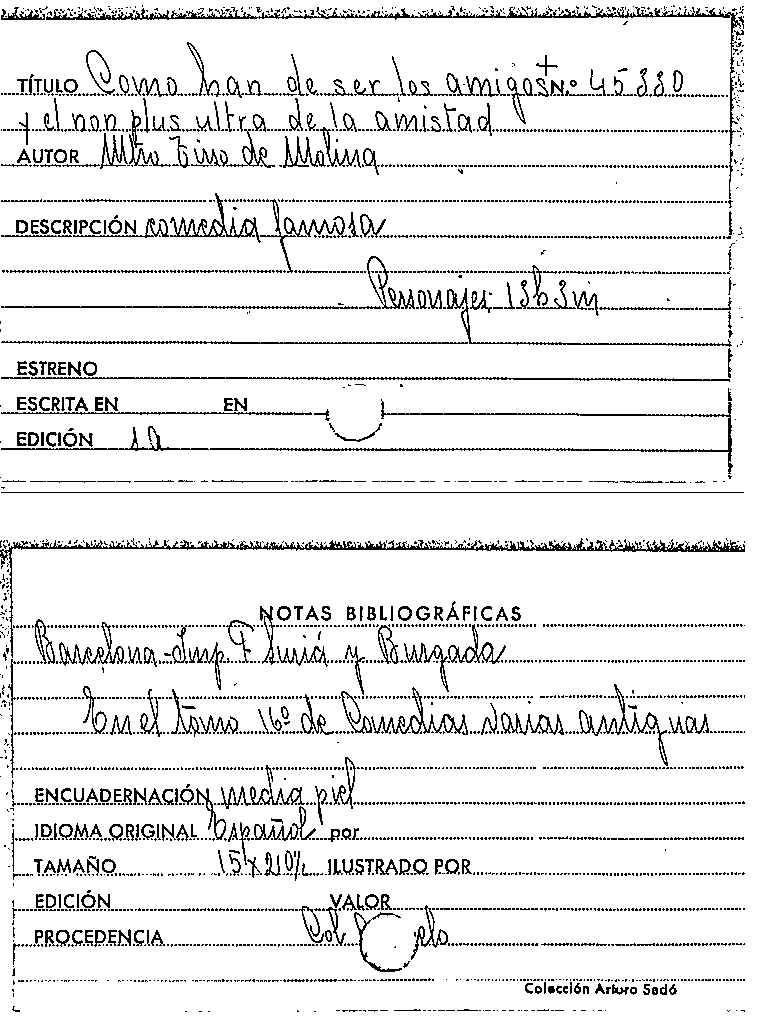 TÍTULO Como han de ser los amigos N.º 45330
y el non plus ultra de la amistad
AUTOR Mtro Tirso de Molina
DESCRIPCIÓN comedia famosa
Personajes 13h 3m
ESTRENO
ESCRITA EN EN
EDICIÓN sa
NOTAS BIBLIOGRÁFICAS
Barcelona-Imp F Suriá y Burgada
En el tomo 16º de Comedias varias antiguas
ENCUADERNACIÓN media piel
IDIOMA ORIGINAL Español por
TAMAÑO 15x21 ILUSTRADO POR
EDICIÓN VALOR
PROCEDENCIA Col
Colección Arturo Sedó